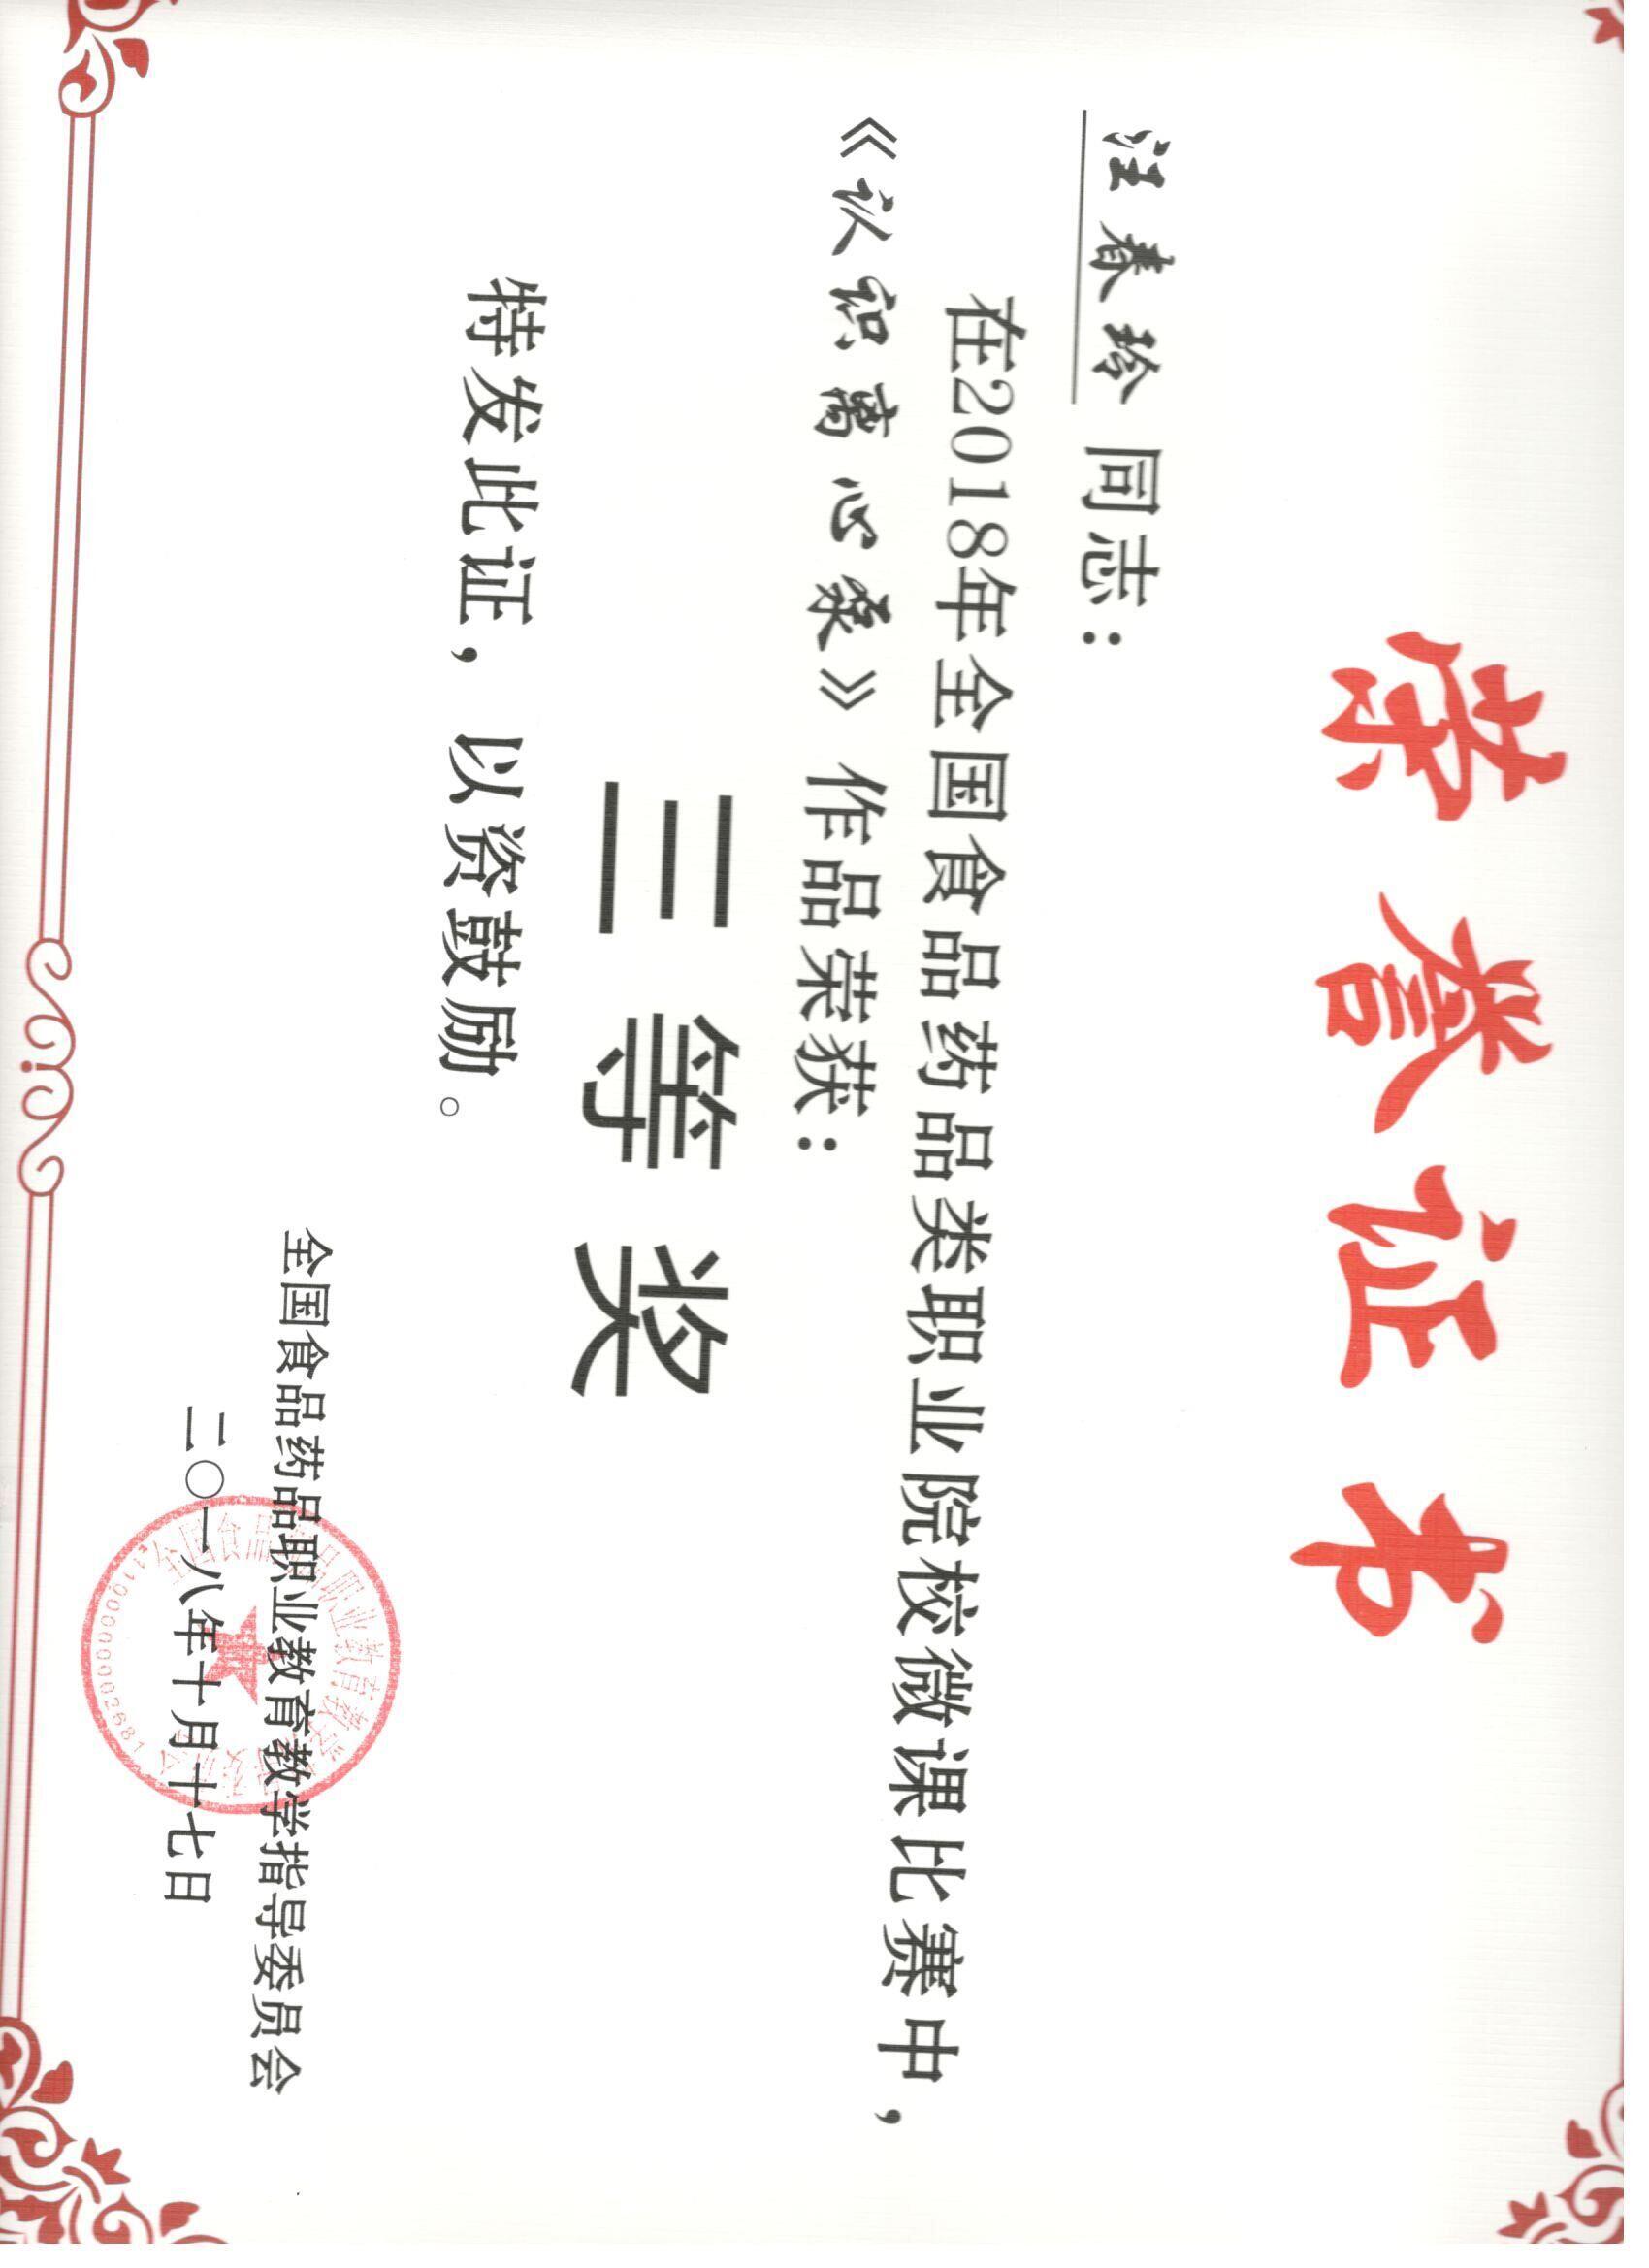 荣誉证书
汪春玲 同志：
在2018年全国食品药品类职业院校微课比赛中，
《认识离心泵》作品荣获：
三等奖
特发此证，以资鼓励。
全国食品药品职业教育教学指导委员会
二〇一八年十月十七日